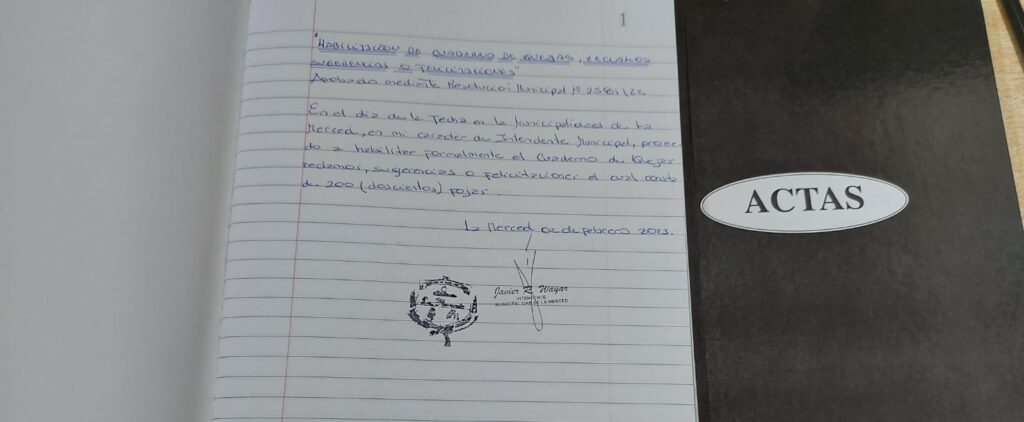 1
"HABILITACION DE CUADERNO DE QUEJAS, RECLAMOS
SUGERENCIAS O FELICITACIONES"
Aprobado mediante Resolucion Municipal Nº 2581/22
En el dia de la Fecha en la Municipalidad de La
Merced, en mi caracter de Intendente Municipal, proce-
do a habilitar formalmente el Cuaderno de Quejas
reclamos, sugerencias o felicitaciones el cual consta
de 200 (doscientos) fojas.
La Merced 02 de febrero 2023.
Javier R. Wayar
INTENDENTE
MUNICIPALIDAD DE LA MERCED
ACTAS